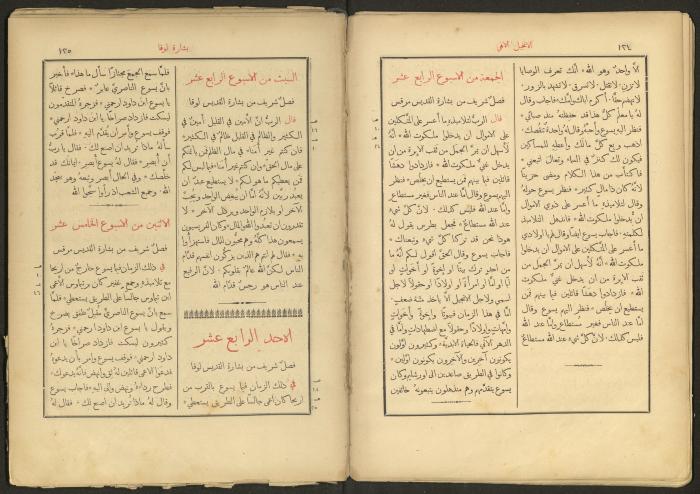 الانجيل الالهي
١٢٤
الاَّ واحدٌ وهو الله * انك تعرف الوصايا
لا تزنِ * لا تقتل * لا تسرق * لا تشهد بالزور *
اكرم اباك وامك * فاجاب وقال
لهُ يا معلّم كلُّ هذا قد حفظته منذ صبائي *
فنظر اليهِ يسوع واحبَّهُ وقال لهُ واحدة تنقصك *
اذهب وبع كلَّ مالك واعطهِ للمساكين
فيكون لك كنزٌ في السماء وتعالَ اتبعني *
فاكتأَب من هذا الكلام ومضى حزينًا
لانهُ كان ذا مال كثير * فنظر يسوع حولهُ
وقال لتلاميذهِ ما اعسر على ذوي الاموال
ان يدخلوا ملكوت الله * فاندهل التلاميذ
لكلمتهِ * فاجاب يسوع ايضًا وقال لهم يا اولادي
ما اعسر على المتَّكلين على الاموال ان يدخلوا
ملكوت الله * انهُ لأسهل ان يمرَّ الجمل من
ثقب الابرة من ان يدخل غنيٌّ ملكوت
الله * فازدادوا دهشًا قائلين فيما بينهم فمن
يستطيع ان يخلص * فنظر اليهم يسوع وقال
امَّا عند الناس فغير مُستطاع وامَّا عند الله
فليس كذلك * لانَّ كلَّ شيءٍ عند الله مستطاع
الجمعة من الاسبوع الرابع عشر
فصلٌ شريف من بشارة القديس مرقس
قال الربُّ لتلاميذهِ ما اعسر على المتَّكلين
على الاموال ان يدخلوا ملكوت الله * انهُ
لأسهل ان يمرَّ الجمل من ثقب الابرة من ان
يدخل غنيٌّ ملكوت الله * فازدادوا دهشًا
قائلين فيما بينهم فمن يستطيع ان يخلص * فنظر
اليهم يسوع وقال امَّا عند الناس فغير مستطاع
وامَّا عند الله فليس كذلك * لانَّ كلَّ شيءٍ
عند الله مستطاعٌ * فجعل بطرس يقول لهُ
هوذا نحن قد تركنا كلَّ شيءٍ وتبعناك *
فاجاب يسوع وقال الحقَّ اقول لكم انهُ ما
من احدٍ ترك بيتًا او إخوةً او أخواتٍ او
أبًا او أمًّا او امرأةً او اولادًا او حقولًا لأجل
اسمي ولأجل الانجيل الاَّ ياخذ مئة ضعف *
امَّا في هذا الزمان فبيوتًا وإخوةً وأخواتٍ
وامهاتٍ واولادًا وحقولًا مع اضطهادات وامَّا في
الدهر الآتي فالحياة الابدية * وكثيرون اوَّلون
يكونون آخرين والآخرون يكونون اوَّلين *
وكانوا في الطريق صاعدين الى اورشليم وكان
يسوع يتقدَّمهم وهم منذهلون يتبعونه خائفين
بشارة لوقا
١٢٥
السبت من الاسبوع الرابع عشر
فصلٌ شريف من بشارة القديس لوقا
قال الربُّ انَّ الأمين في القليل أمينٌ في
الكثير والظالم في القليل ظالمٌ في الكثير *
فان كنتم غير أمناء في مال الظلم فمن ياتمنكم
على مال الحقّ * وان كنتم غير أمناء فيما ليس لكم
فمن يعطيكم ما هو لكم * لا يستطيع عبدٌ ان
يعبد ربَّين لانهُ امَّا ان يبغض الواحد ويحبَّ
الآخر او يلازم الواحد ويرذل الآخر * لا
تقدرون ان تعبدوا الله والمال * وكان الفريسيون
يسمعون هذا كلَّهُ وهم محبُّون للمال فاستهزأُوا
بهِ * فقال لهم انتم هم الذين يزكُّون انفسهم قدَّام
الناس لكنَّ الله عالمٌ بقلوبكم * لانَّ الرفيع
عند الناس هو رجسٌ قدَّام الله
الاحد الرابع عشر
فصلٌ شريف من بشارة القديس لوقا
في ذلك الزمان فيما يسوع بالقرب من
اريحا كان اعمى جالسًا على الطريق يستعطي *
فلمَّا سمع الجمع مجتازًا سأَل ما هذا * فأخبر
بانَّ يسوع الناصريّ عابرٌ * فصرخ قائلًا
يا يسوع ابن داود ارحمني * فزجرهُ المتقدمون
ليسكت فازداد صراخًا يا ابن داود ارحمني *
فوقف يسوع وأمر ان يقدَّم اليهِ * فلمَّا قرب
سأَلهُ ماذا تريد ان اصنع لك * فقال يا ربُّ
أن أُبصر * فقال لهُ يسوع أبصر * ايمانك قد
خلَّصك * وفي الحال أبصر وتبعهُ وهو يمجّد
الله * وجميع الشعب اذ رأوا سبَّحوا الله
الاثنين من الاسبوع الخامس عشر
فصلٌ شريف من بشارة القديس مرقس
في ذلك الزمان فيما يسوع خارجٌ من اريحا
مع تلاميذهِ وجمعٍ غفيرٍ كان برتيماوس الأعمى
ابن تيماوس جالسًا على الطريق يستعطي * فلمَّا
سمع بانَّ يسوع الناصريّ مُقبلٌ طفق يصرخ
ويقول يا يسوع ابن داود ارحمني * فزجرهُ
كثيرون ليسكت فازداد صراخًا يا ابن
داود ارحمني * فوقف يسوع وامر بان يدعوهُ *
فدعوا الاعمى قائلين لهُ ثق وانهض فانهُ يدعوك *
فطرح رداءَهُ ونهض واتى اليهِ * فاجاب يسوع
وقال لهُ ماذا تريد ان اصنع لك * فقال لهُ